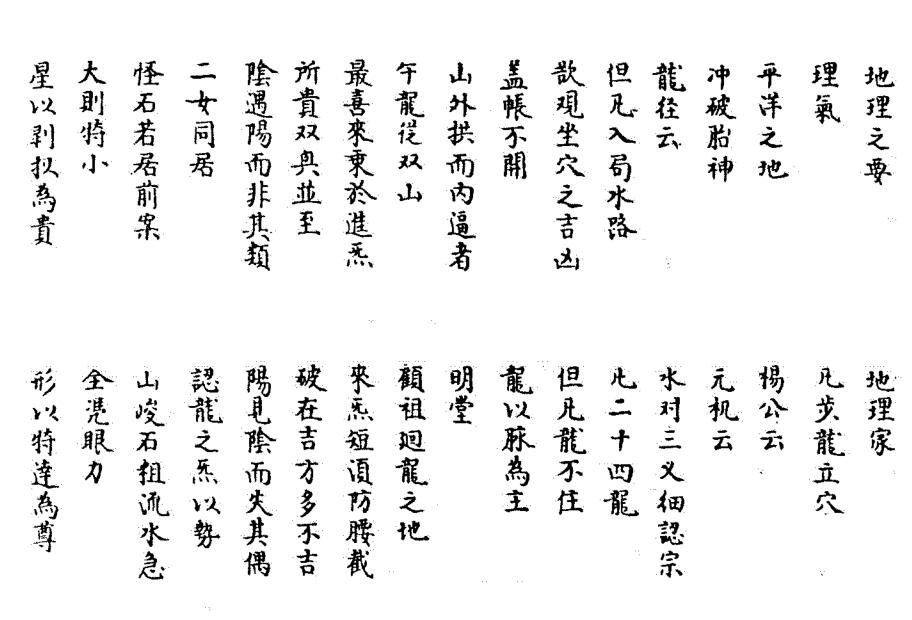 地理之要
理氣
平洋之地
冲破胎神
龍径云
但凡入局水路
欲观坐穴之吉凶
盖帳不開
山外拱而内逼者
午龍従双山
最喜來乘於進炁
所貴双臾並至
陰遇陽而非其類
二女同居
怪石若居前案
大則特小
星以剥换為貴
地理家
凡步龍立穴
楊公云
元机云
水对三义細認宗
凡二十四龍
但凡龍不住
龍以脉為主
明堂
顧祖廻龍之地
來炁短湏防腰截
破在吉方多不吉
陽見陰而失其偶
認龍之炁以勢
山峻石粗流水急
全凴眼力
形以特達為尊